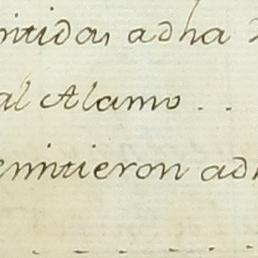 mitidas adha
al Alamo . .
emitieron adh